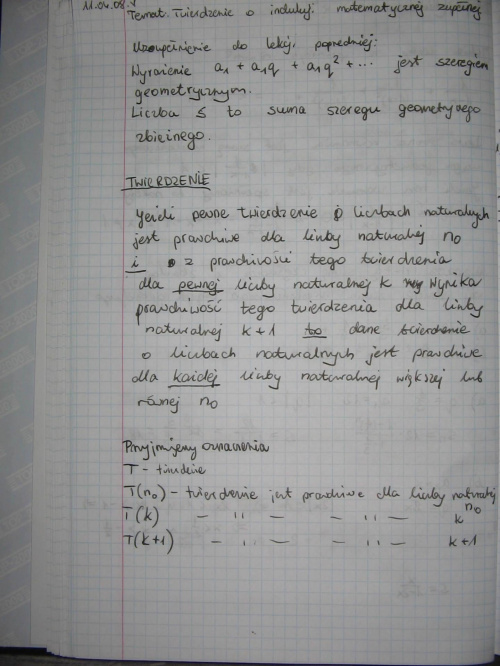 11.04.08.
Temat: Twierdzenie o indukcji matematycznej zupełnej
Uzupełnienie do lekcji poprzedniej:
Wyrażenie a₁ + a₁q + a₁q² + ... jest szeregiem
geometrycznym.
Liczba S to suma szeregu geometrycznego
zbieżnego.
TWIERDZENIE
Jeżeli pewne twierdzenie o liczbach naturalnych
jest prawdziwe dla liczby naturalnej n₀
i z prawdziwości tego twierdzenia
dla pewnej liczby naturalnej k wynika
prawdziwość tego twierdzenia dla liczby
naturalnej k+1 to dane twierdzenie
o liczbach naturalnych jest prawdziwe
dla każdej liczby naturalnej większej lub
równej n₀
Przyjmijmy oznaczenia
T - twierdzenie
T(n₀) - twierdzenie jest prawdziwe dla liczby naturalnej n₀
T(k) - '' - - '' - k
T(k+1) - '' - - '' - k+1